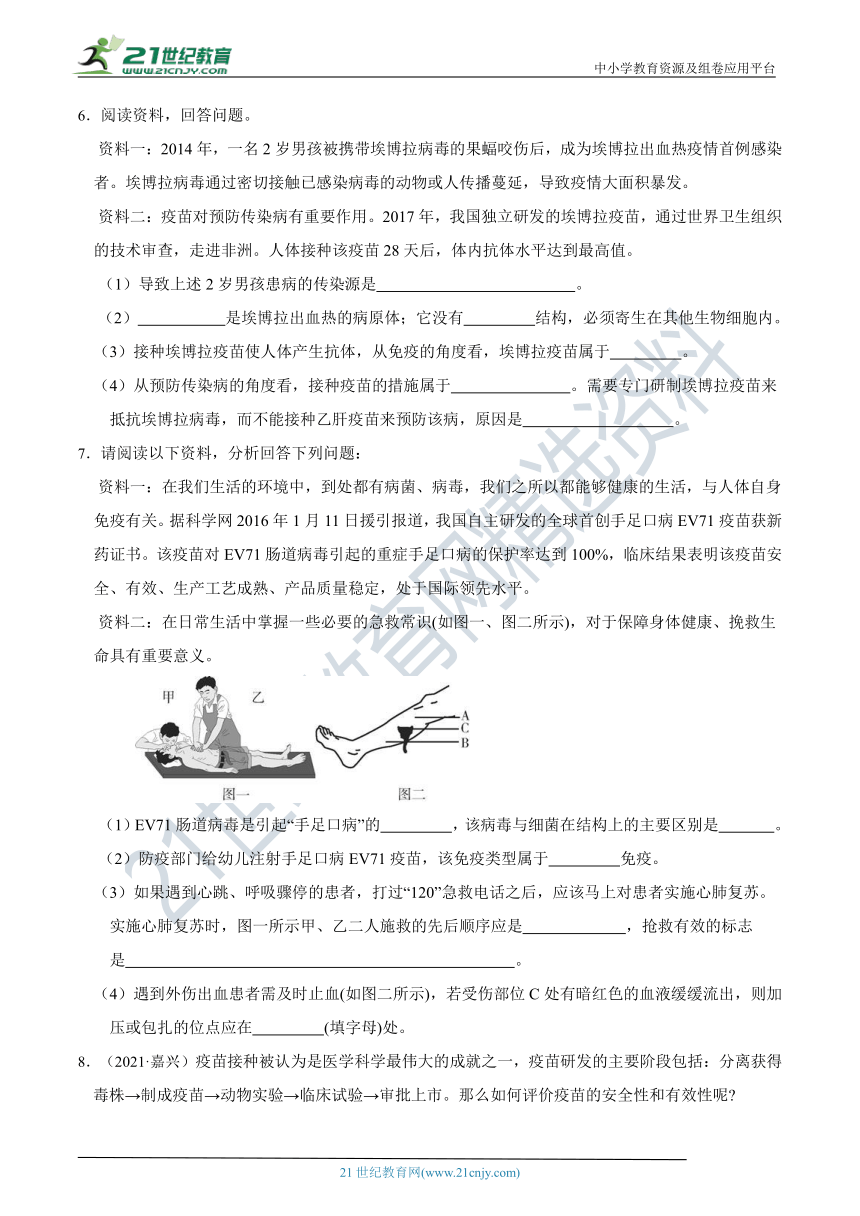 21世纪教育
www.21cnjy.com
中小学教育资源及组卷应用平台
6．阅读资料，回答问题。
资料一：2014年，一名2岁男孩被携带埃博拉病毒的果蝠咬伤后，成为埃博拉出血热疫情首例感染
者。埃博拉病毒通过密切接触已感染病毒的动物或人传播蔓延，导致疫情大面积暴发。
资料二：疫苗对预防传染病有重要作用。2017年，我国独立研发的埃博拉疫苗，通过世界卫生组织
的技术审查，走进非洲。人体接种该疫苗28天后，体内抗体水平达到最高值。
（1）导致上述2岁男孩患病的传染源是____________。
（2）____________是埃博拉出血热的病原体；它没有________结构，必须寄生在其他生物细胞内。
（3）接种埃博拉疫苗使人体产生抗体，从免疫的角度看，埃博拉疫苗属于________。
（4）从预防传染病的角度看，接种疫苗的措施属于____________。需要专门研制埃博拉疫苗来
抵抗埃博拉病毒，而不能接种乙肝疫苗来预防该病，原因是____________。
7．请阅读以下资料，分析回答下列问题：
资料一：在我们生活的环境中，到处都有病菌、病毒，我们之所以都能够健康的生活，与人体自身
免疫有关。据科学网2016年1月11日援引报道，我国自主研发的全球首创手足口病EV71疫苗获新
药证书。该疫苗对EV71肠道病毒引起的重症手足口病的保护率达到100%，临床结果表明该疫苗安
全、有效、生产工艺成熟、产品质量稳定，处于国际领先水平。
资料二：在日常生活中掌握一些必要的急救常识(如图一、图二所示)，对于保障身体健康、挽救生
命具有重要意义。
甲 乙
A
C
B
图一 图二
（1）EV71肠道病毒是引起“手足口病”的________，该病毒与细菌在结构上的主要区别是______。
（2）防疫部门给幼儿注射手足口病EV71疫苗，该免疫类型属于________免疫。
（3）如果遇到心跳、呼吸骤停的患者，打过“120”急救电话之后，应该马上对患者实施心肺复苏。
实施心肺复苏时，图一所示甲、乙二人施救的先后顺序应是____________，抢救有效的标志
是____________。
（4）遇到外伤出血患者需及时止血(如图二所示)，若受伤部位C处有暗红色的血液缓缓流出，则加
压或包扎的位点应在________(填字母)处。
8．（2021·嘉兴）疫苗接种被认为是医学科学最伟大的成就之一，疫苗研发的主要阶段包括：分离获得
毒株→制成疫苗→动物实验→临床试验→审批上市。那么如何评价疫苗的安全性和有效性呢?
21世纪教育网精选资料
21世纪教育网(www.21cnjy.com)